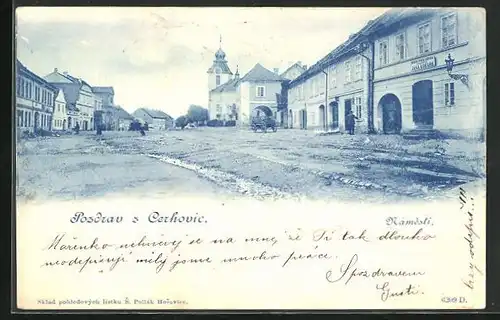 Pozdrav z Cerhovic.
Náměstí.
Mařenko nehněvej se na mne, že Ti tak dlouho
neodepisuji měli jsme mnoho práce.
S pozdravem
Gusti.
brzy odepiš
Sklad pohledových lístků R. Pollák Hořovice.